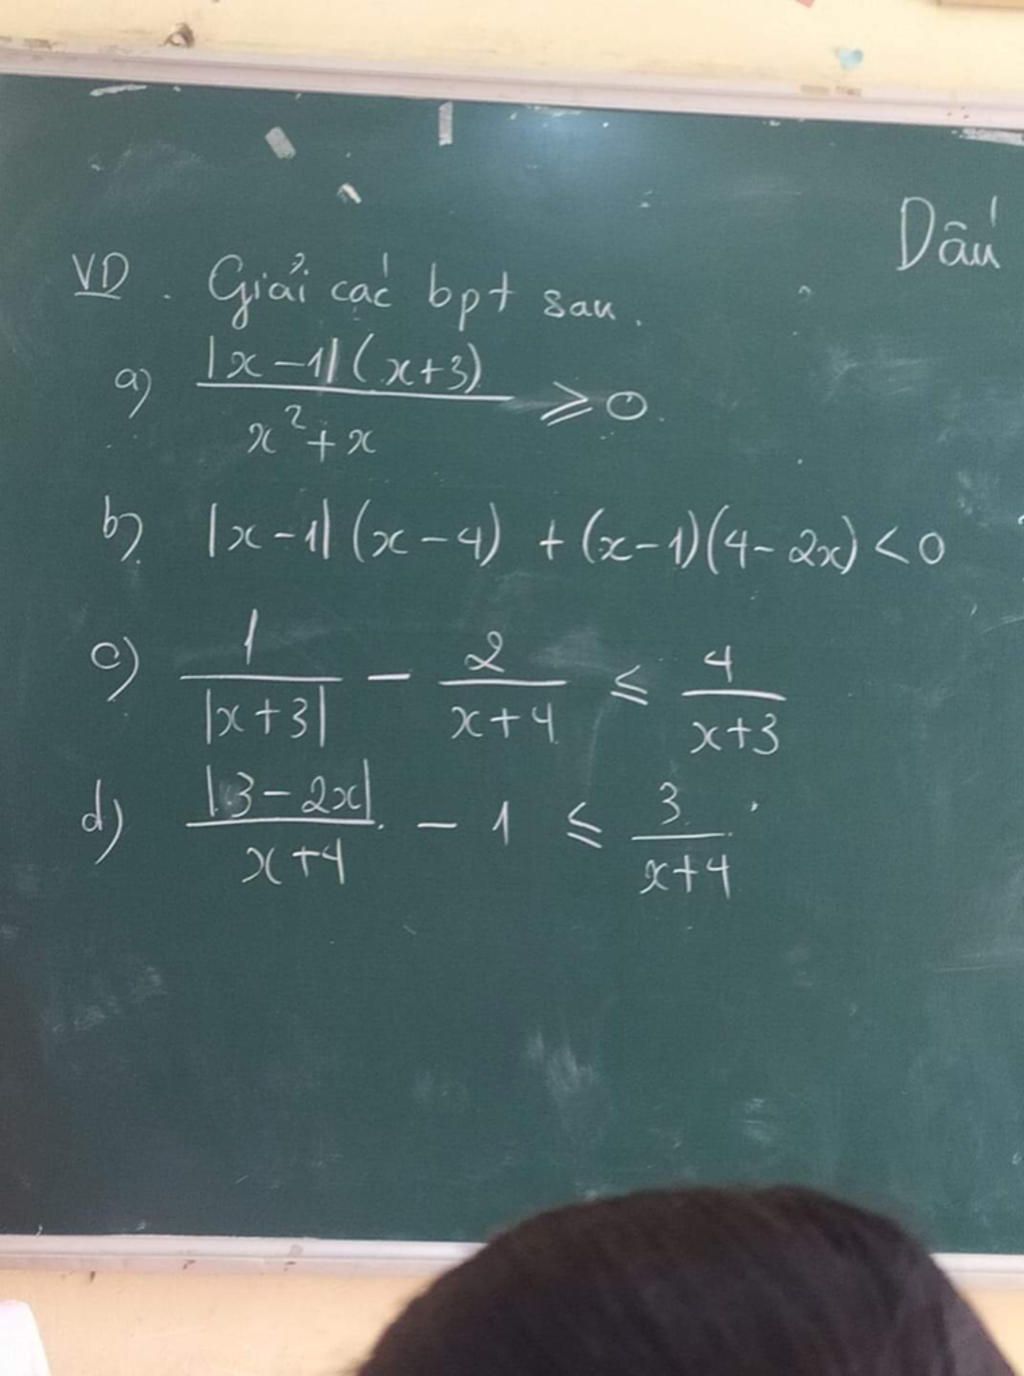 Dấu
VD. Giải các bpt sau.
a) |x-1|(x+3)/(x²+x) ⩾ 0.
b) |x-1|(x-4) + (x-1)(4-2x) < 0
c) 1/|x+3| - 2/(x+4) ⩽ 4/(x+3)
d) |3-2x|/(x+4) - 1 ⩽ 3/(x+4)